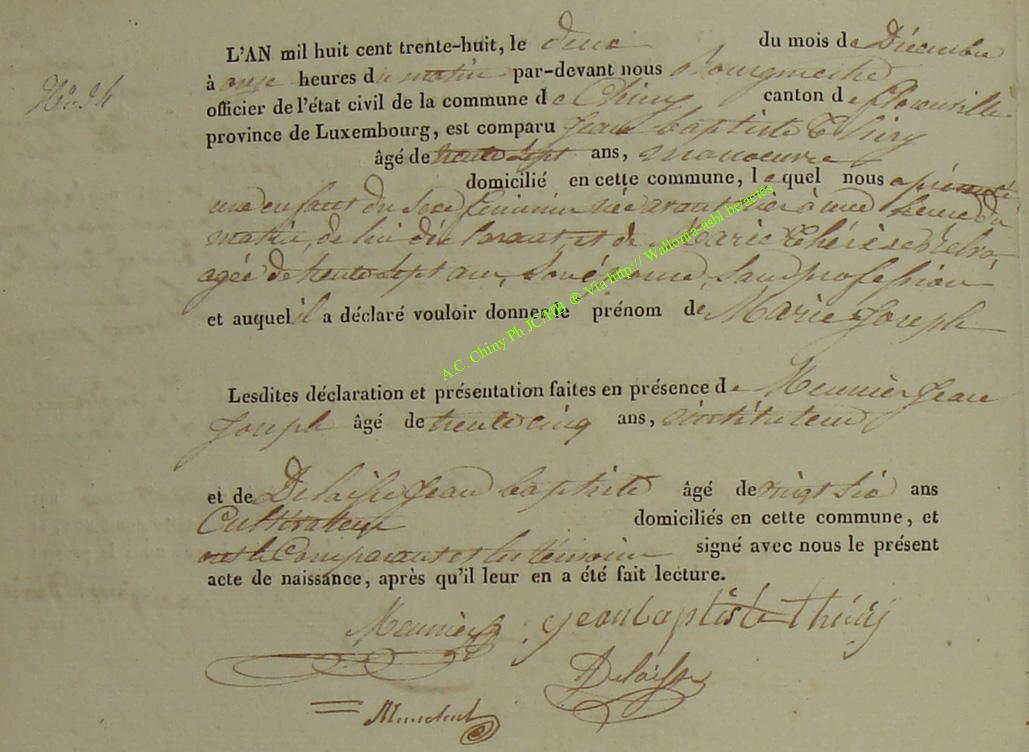 N° 24
L'AN mil huit cent trente-huit, le deux du mois de Décembre
à onze heures du matin par-devant nous Bourgmestre
officier de l'état civil de la commune de Chiny canton de florenville
province de Luxembourg, est comparu Jean baptiste Thiry
âgé de trente sept ans, manoeuvre
domicilié en cette commune, lequel nous a présenté
une enfant du sexe féminin née avant hier à une heure du
matin, de lui déclarant, et de Marie Thérèse
agée de trente sept ans, son épouse, sans profession
et auquel il a déclaré vouloir donner le prénom de Marie Joseph
Lesdites déclaration et présentation faites en présence de Meunier Jean
Joseph âgé de trente cinq ans, instituteur
et de Delaisse Jean baptiste âgé de vingt six ans
Cultivateur domiciliés en cette commune, et
ont le Comparant et les témoins signé avec nous le présent
acte de naissance, après qu'il leur en a été fait lecture.
Meunier jean baptiste thiry
Delaisse
A.C. Chiny Ph JC @ Via http:// Wallonia-asbl.be/actes